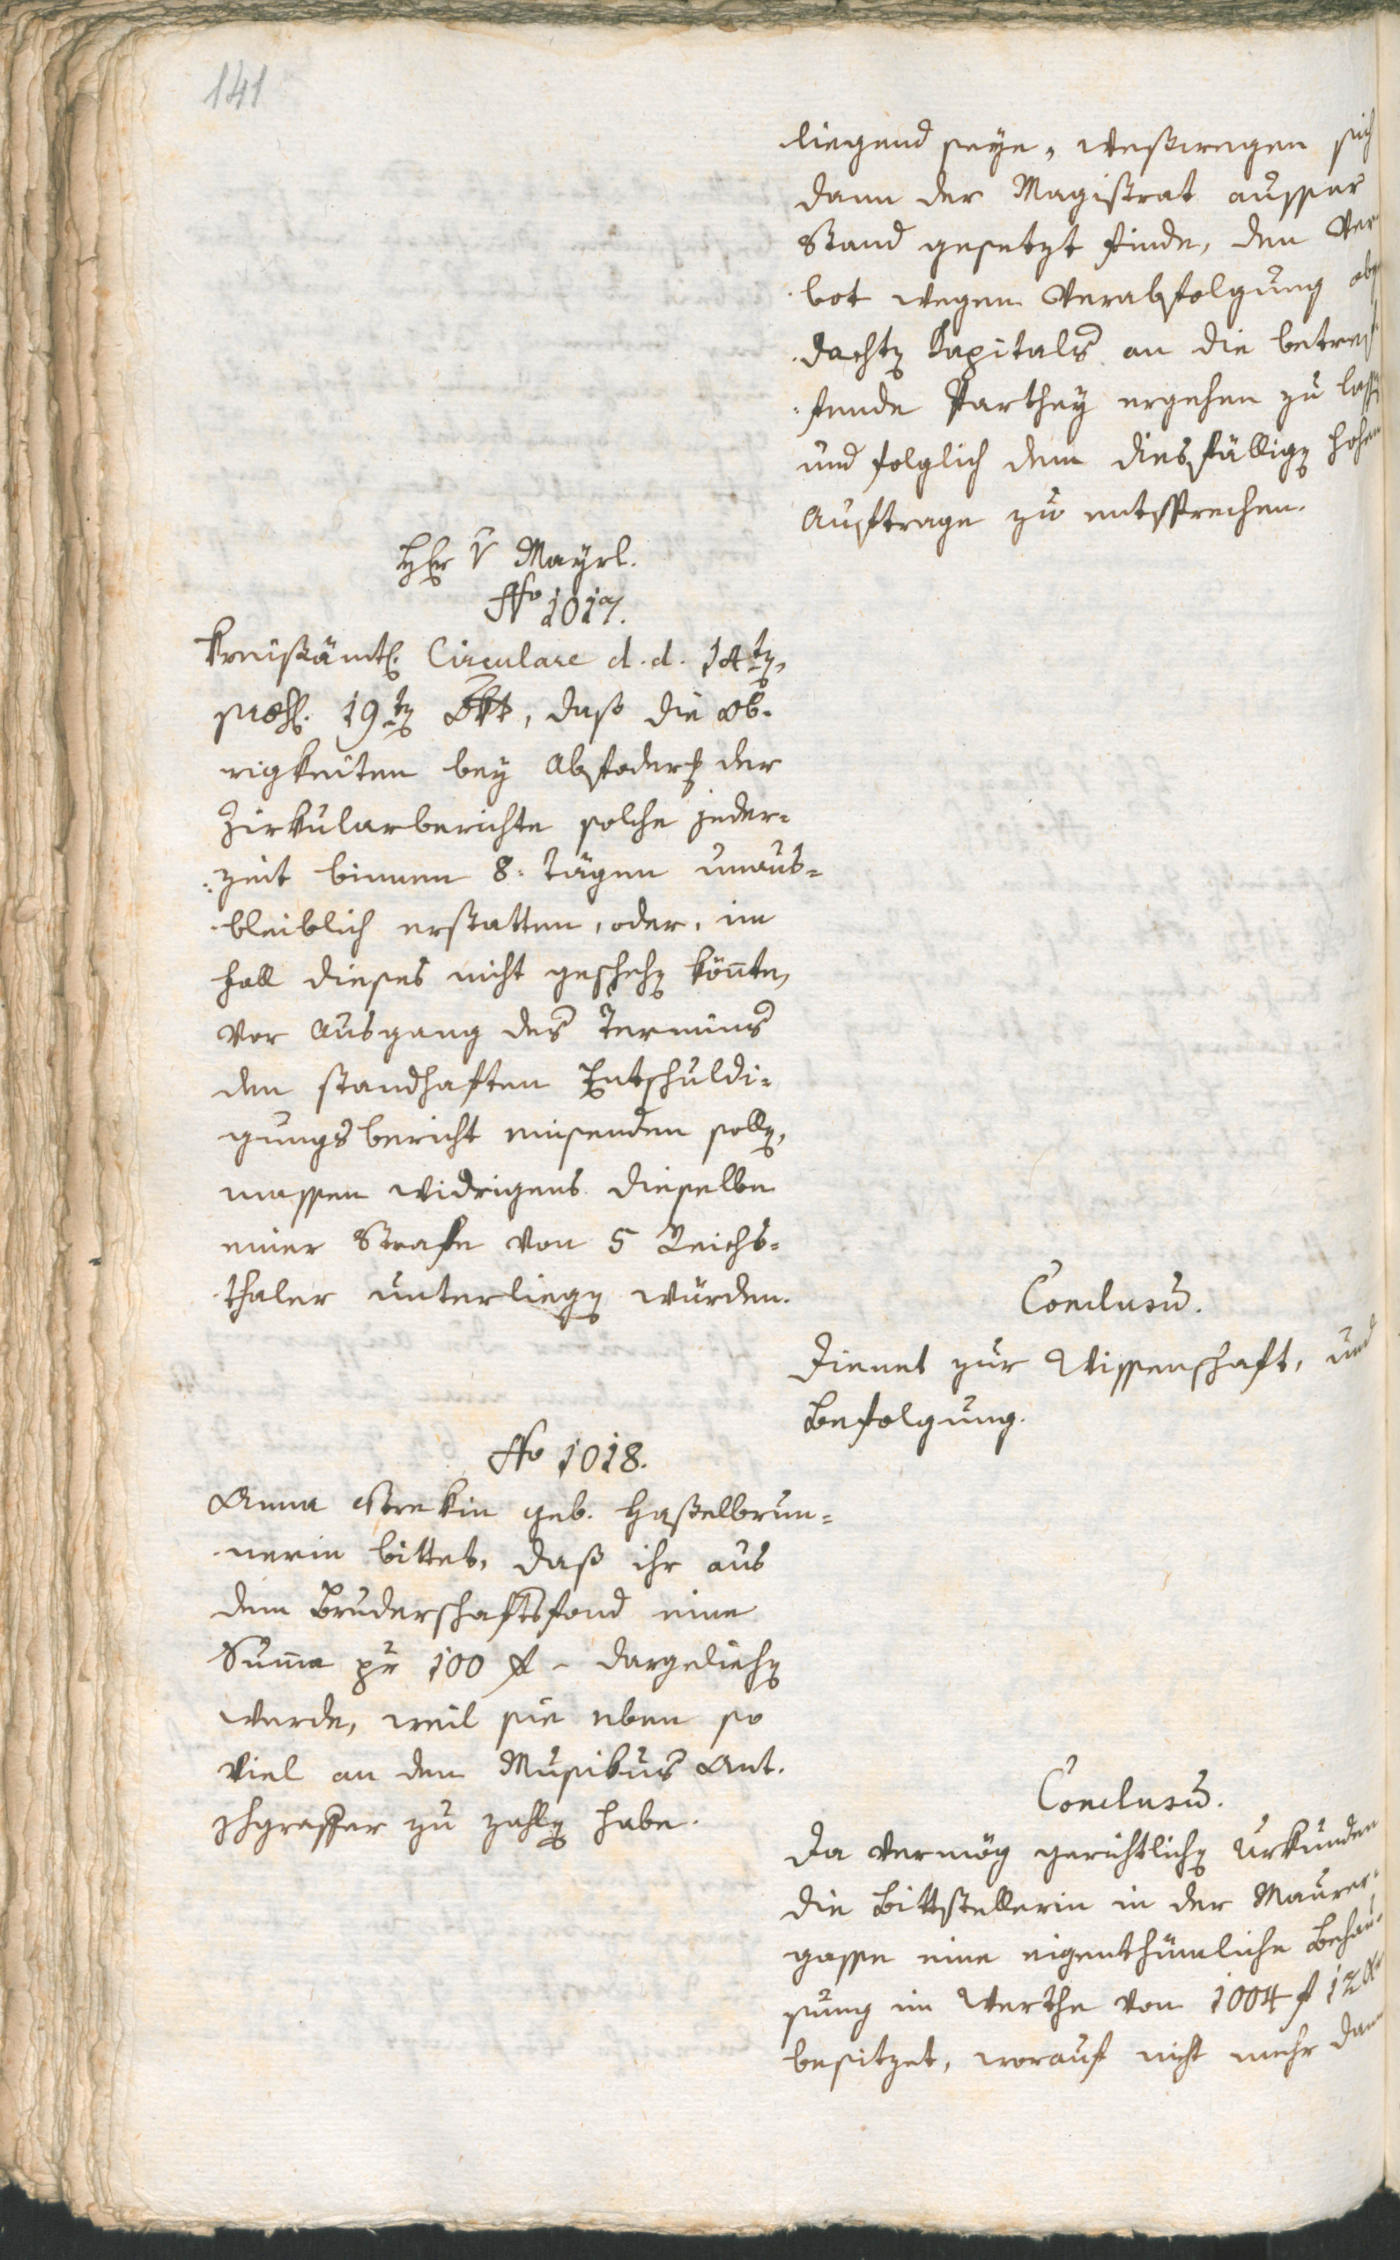 141
liegend seye, weßwegen sich
dann der Magistrat ausser
Stand gesetzt finde, den Ver-
bot wegen Verabfolgung obge
dachtn Kapitals an die betref
fende Parthey ergehen zu lassn
und folglich dem diesfälligen hohen
Auftrage zu entsprechen.
HEr v Mayrl.
No 1017.
Kreißämtl. Circulare d. d. 14tn,
præs. 19tn Okt, daß die Ob-
rigkeiten bey Abfoderg der
Zirkularberichte solche jeder-
zeit binnen 8: Tägen unaus-
bleiblich erstatten, oder, im
Fall dieses nicht geschehn könnte,
vor Ausgang des Termins
den standhaften Entschuldi-
gungsbericht einsenden solln,
massen widrigens dieselbe
einer Strafe von 5 Reichs-
thaler unterliegn würden.
Conclusū.
Dienet zur Wissenschaft, und
Befolgung.
No 1018.
Anna geb. Haßelbrun-
nerin bittet, daß ihr aus
dem Bruderschaftsfond eine
Suma pr 100 f - dargeliehn
werde, weil sie eben so
viel an den Musikus Ant.
zu zahln habe.
Conclusū.
Da vermög gerichtlichn Urkunden
die Bittstellerin in der Maurer-
gasse eine eigenthümliche Behau-
sung im Werthe von 1004 f 12 xr
besitzet, worauf nicht mehr dann